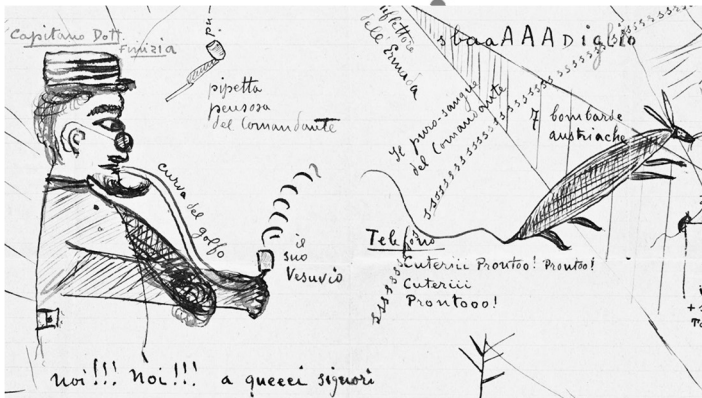 Capitano Dott.
pipetta
pensosa
del Comandante
curva del golfo
il
suo
Vesuvio
noi!!! Noi!!! a queeci signori
dell'Ermada
sbaaAAADiglio
Il puro-sangue
del Comandante
7 bombarde
austriache
sssssssssssssssssss
Telefono
Cuteriii Prontoo! Prontoo!
Cuteriii
Prontooo!